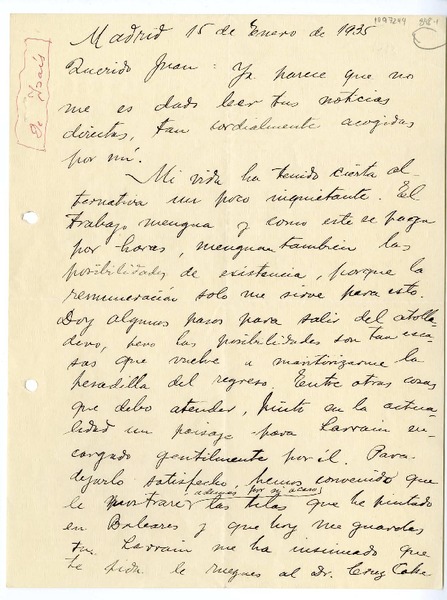 1097249 848-1
De Isaías
Madrid 15 de Enero de 1935
Querido Juan: Ya parece que no
me es dado leer tus noticias
directas, tan cordialmente acogidas
por mí.
Mi vida ha tenido cierta al-
ternativa un poco inquietante. El
trabajo mengua y como este se paga
por horas, menguan también las
posibilidades de existencia, porque la
remuneración solo me sirve para esto.
Doy algunos pasos para salir del atolla
dero, pero las posibilidades son tan esca
sas que vuelve a mantorizarme la
pesadilla del regreso. Entre otras cosas
que debo atender, pinto en la actua-
lidad un paisaje para Larrain en-
cargado gentilmente por él. Para
dejarlo satisfecho, hemos convenido que
además por si acaso
le mostraré las telas que he pintado
en Baleares y que hoy me guardas
tu. Larrain me ha insinuado que
te pida le ruegues al Dr. Cruz Coke